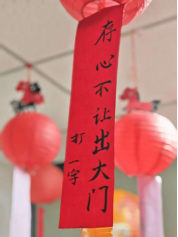 存心不让出大门
打一字